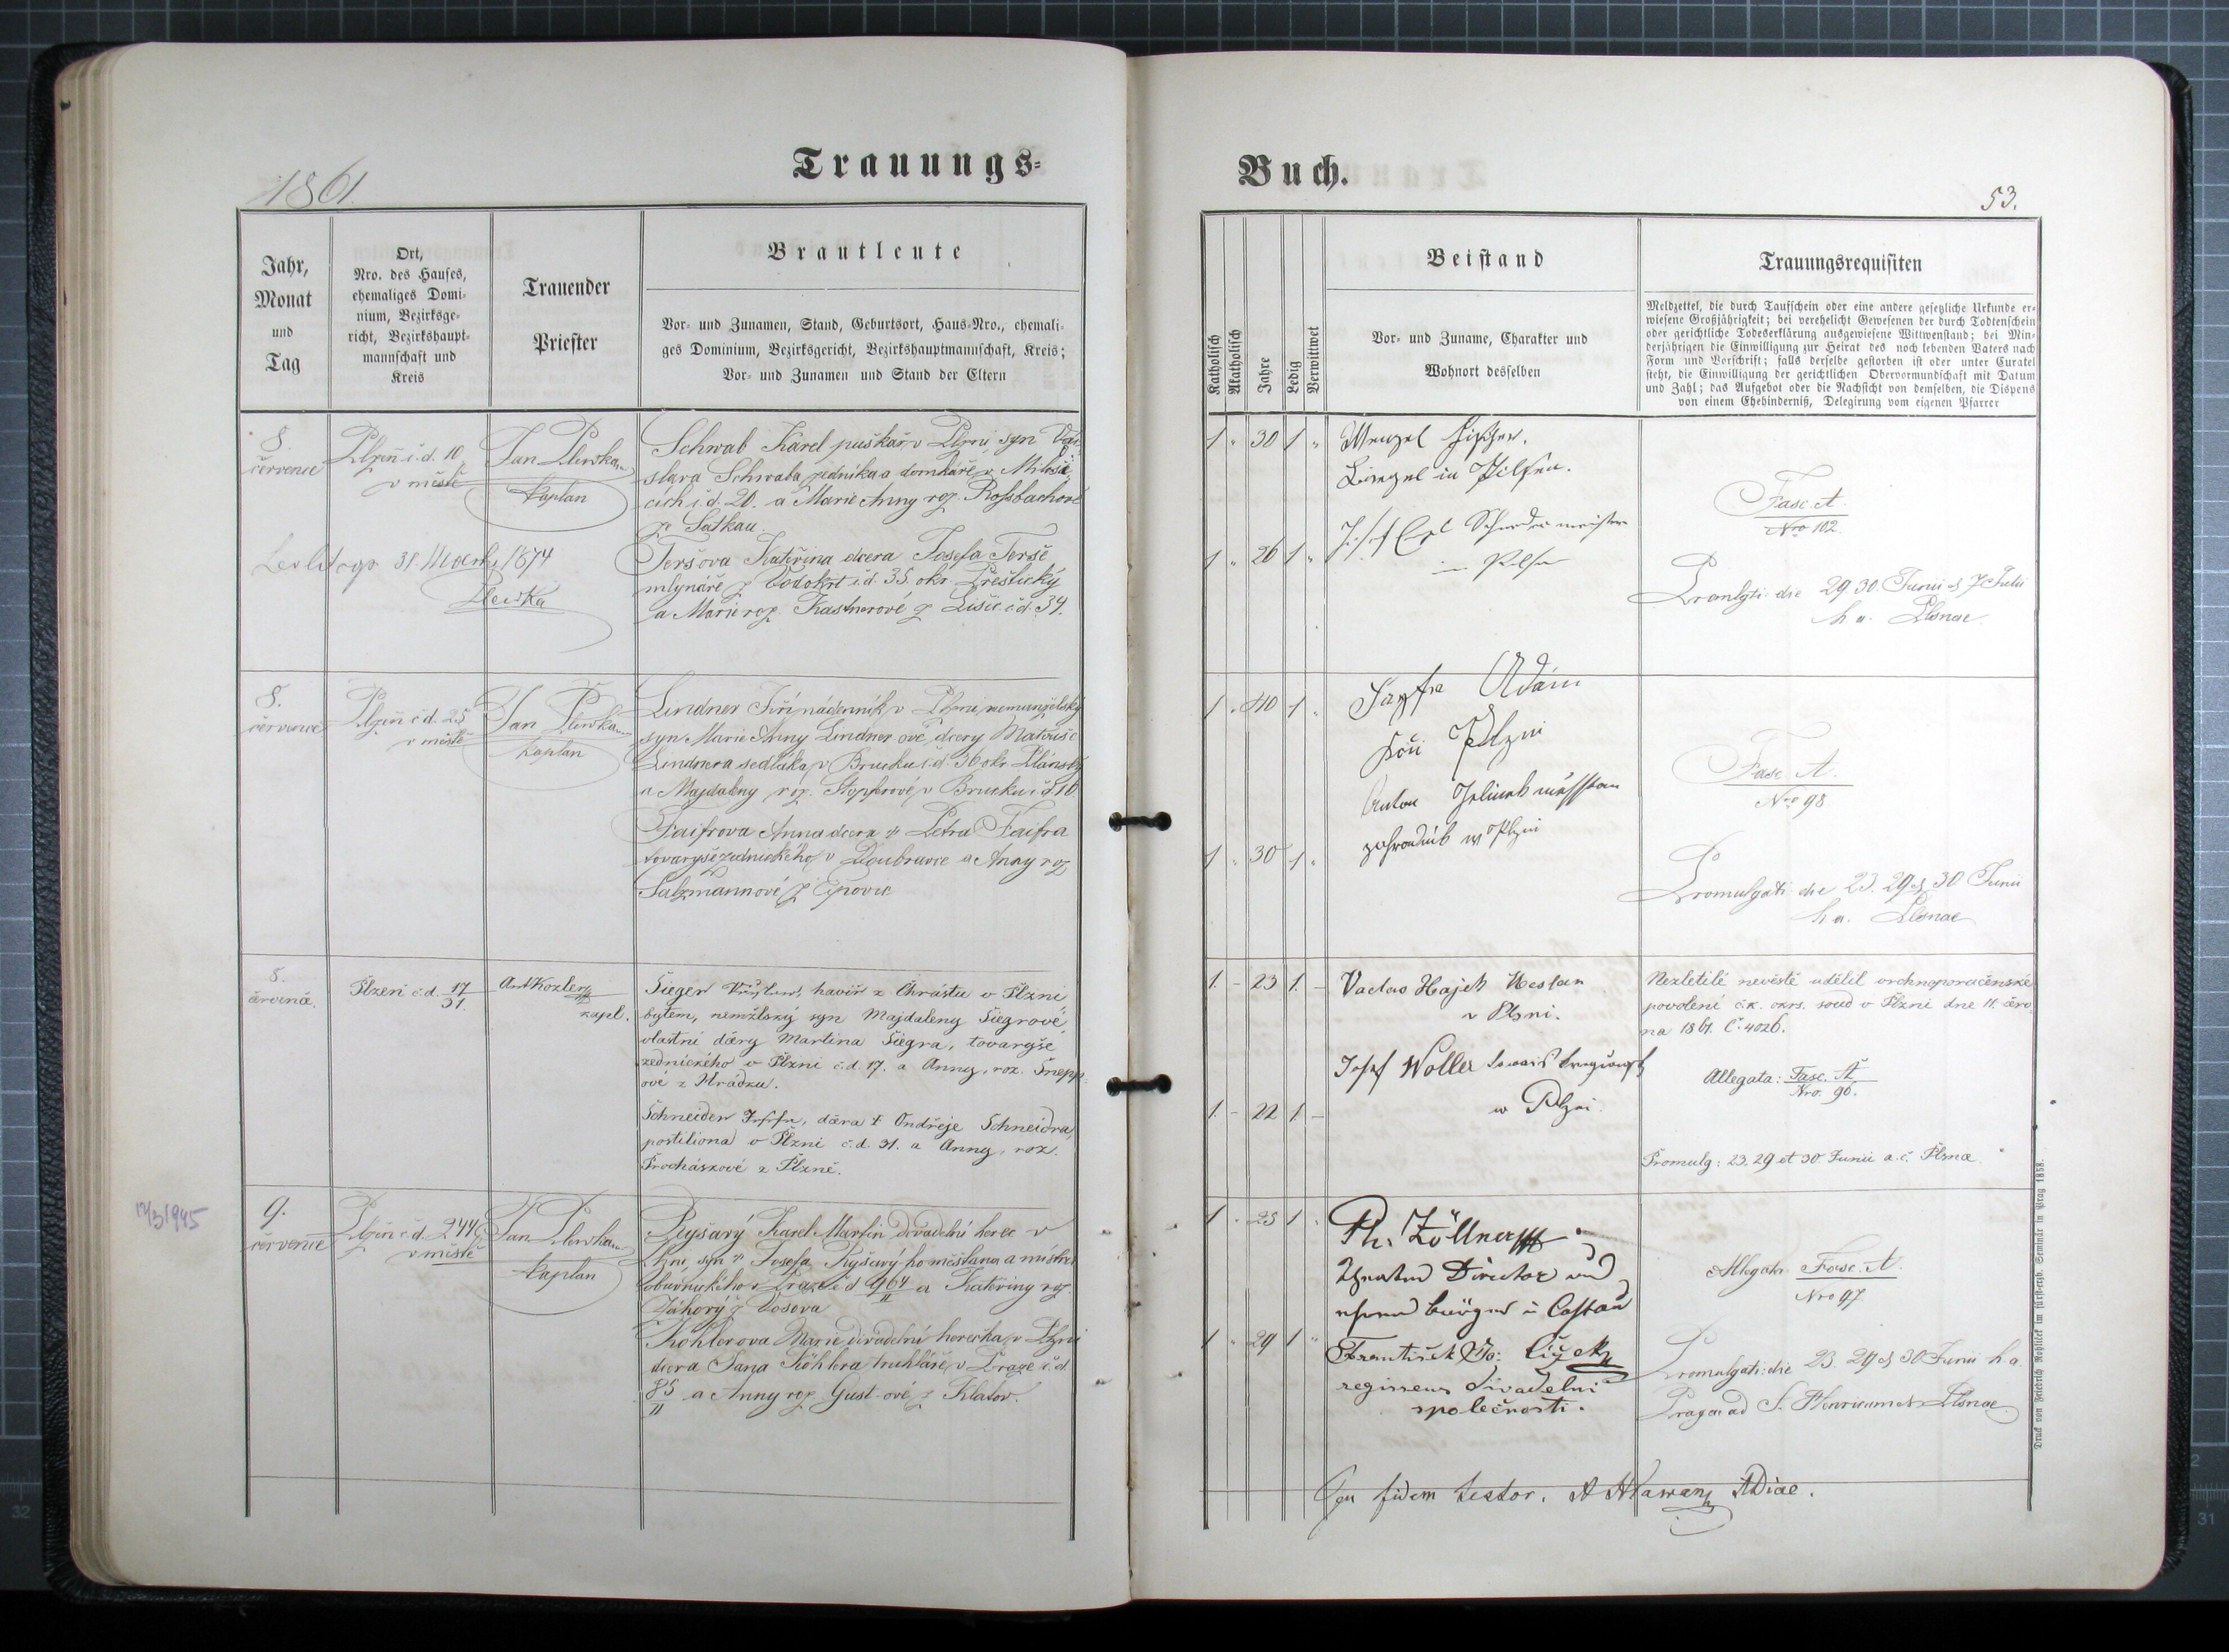 1861.
Trauungs-
Jahr,
Monat
und
Tag
Ort,
Nro. des Hauses,
ehemaliges Domi-
nium, Bezirksge-
richt, Bezirkshaupt-
mannschaft und
Kreis
Trauender
Priester
Brautleute
Vor- und Zunamen, Stand, Geburtsort, Haus-Nro., ehemali-
ges Dominium, Bezirksgericht, Bezirkshauptmannschaft, Kreis;
Vor- und Zunamen und Stand der Eltern
8.
července
Plzeň č. d. 10
v městě
Jan Plevka
kaplan
Schwab Karel puškař v Plzni, syn
slava Schwaba zedníka a domkáře v
cích č. d. 20. a Marie Anny roz. Roßbachové
z Satkau.
Teršova Kateřina dcera Josefa Terše
mlynáře z Vodokrt č. d. 35. okr. Přeštický
a Marie roz. Kastnerové z Lišic č. d. 34.
31. 1874
Plevka
8.
července
Plzeň č. d. 25
v městě
Jan Plevka
kaplan
Lindner Jiří nádenník v Plzni, nemanželský
syn Marie Anny Lindner ové, dcery Matouše
Lindnera sedláka v Brucku č. d. 36 okr. Plánský
a Majdaleny roz. v Brucku č. d. 10.
Faifrova Anna dcera † Petra Faifra
tovaryše zednického v Doubravce a Anny roz.
Salzmannové z Ejpovic
8.
července.
Plzeň č. d. 17
31.
Ant Kozler
kapl.
Šieger havíř z Chrástu v Plzni
bytem, nemžlský syn Majdaleny Šiegrové,
vlastní dcery Martina Šiegra, tovaryše
zednického v Plzni č. d. 17. a Anny, roz. Šnepp-
ové z Hrádku.
Schneider Josefa, dcera † Ondřeje Schneidra,
postiliona v Plzni č. d. 31. a Anny, roz.
Procháskové z Plzně.
12/3 1945
9.
července
Plzeň č. d. 244
v městě
Jan Plevka
kaplan
Ryšavý Karel Martin divadelní herec v
Plzni, syn † Josefa Ryšavý ho měštana a mistra
obuvnického v Praze č. d. 964/II a Kateřiny roz.
Záhorý z Vosova
Köhlerova Marie divadelní herečka v Plzni
dcera Jana Köhlera truhláře v Praze č. d.
85/II a Anny roz. Gust-ové z Klatov.
Buch.
53.
Katholisch
Akatholisch
Jahre
Ledig
Verwittwet
Beistand
Vor- und Zuname, Charakter und
Wohnort desselben
Trauungsrequisiten
Meldzettel, die durch Taufschein oder eine andere gesetzliche Urkunde er-
wiesene Großjährigkeit; bei verehelicht Gewesenen der durch Todtenschein
oder gerichtliche Todeserklärung ausgewiesene Wittwenstand; bei Min-
derjährigen die Einwilligung zur Heirat des noch lebenden Vaters nach
Form und Vorschrift; falls derselbe gestorben ist oder unter Curatel
steht, die Einwilligung der gerichtlichen Obervormundschaft mit Datum
und Zahl; das Aufgebot oder die Nachsicht von demselben, die Dispens
von einem Ehehinderniß, Delegirung vom eigenen Pfarrer
1 " 30 1 "
Wenzel Fischer.
in Pilsen.
1 " 26 1 "
Schneidermeister
in Pilsen
Fasc. A.
Nro 102.
Promlgti: die 29 30. Junii & 7 Julii
h a. Plsnae
1 " 40 1 "
Adám
Plzni
Anton Jelinek měšťan
zahradník w Plzni
1 " 30 1 "
Fasc. A.
Nro 98
Promulgati die 23. 29 & 30 Junii
h. a. Plsnae
1. – 23 1. –
Vaclav Hajek Mestan
v Plsni.
Josef Woller
w Plzni.
1. – 22 1. –
Nezletilé nevěstě udělil vrchnoporučenské
povolení č. k. okrs. soud v Plzni dne 11. červ-
na 1861. Č. 4026.
Allegata: Fasc. A
Nro. 96.
Promulg: 23. 29 et 30. Junii a. c. Plsnæ.
1 " 25 1 "
Ph. Zöllner
Theater Director und
Bürger
1 " 29 1 "
František Čížek
regisseur divadelní
společnosti.
Allegata Fasc. A.
Nro 97
Promulgati: die 23. 29 & 30 Junii h. a.
Pragae ad S. Henricum & Plsnae
fidem testor.
Druck von Friedrich Rohliček im fürst-erzb. Seminär in Prag 1858.